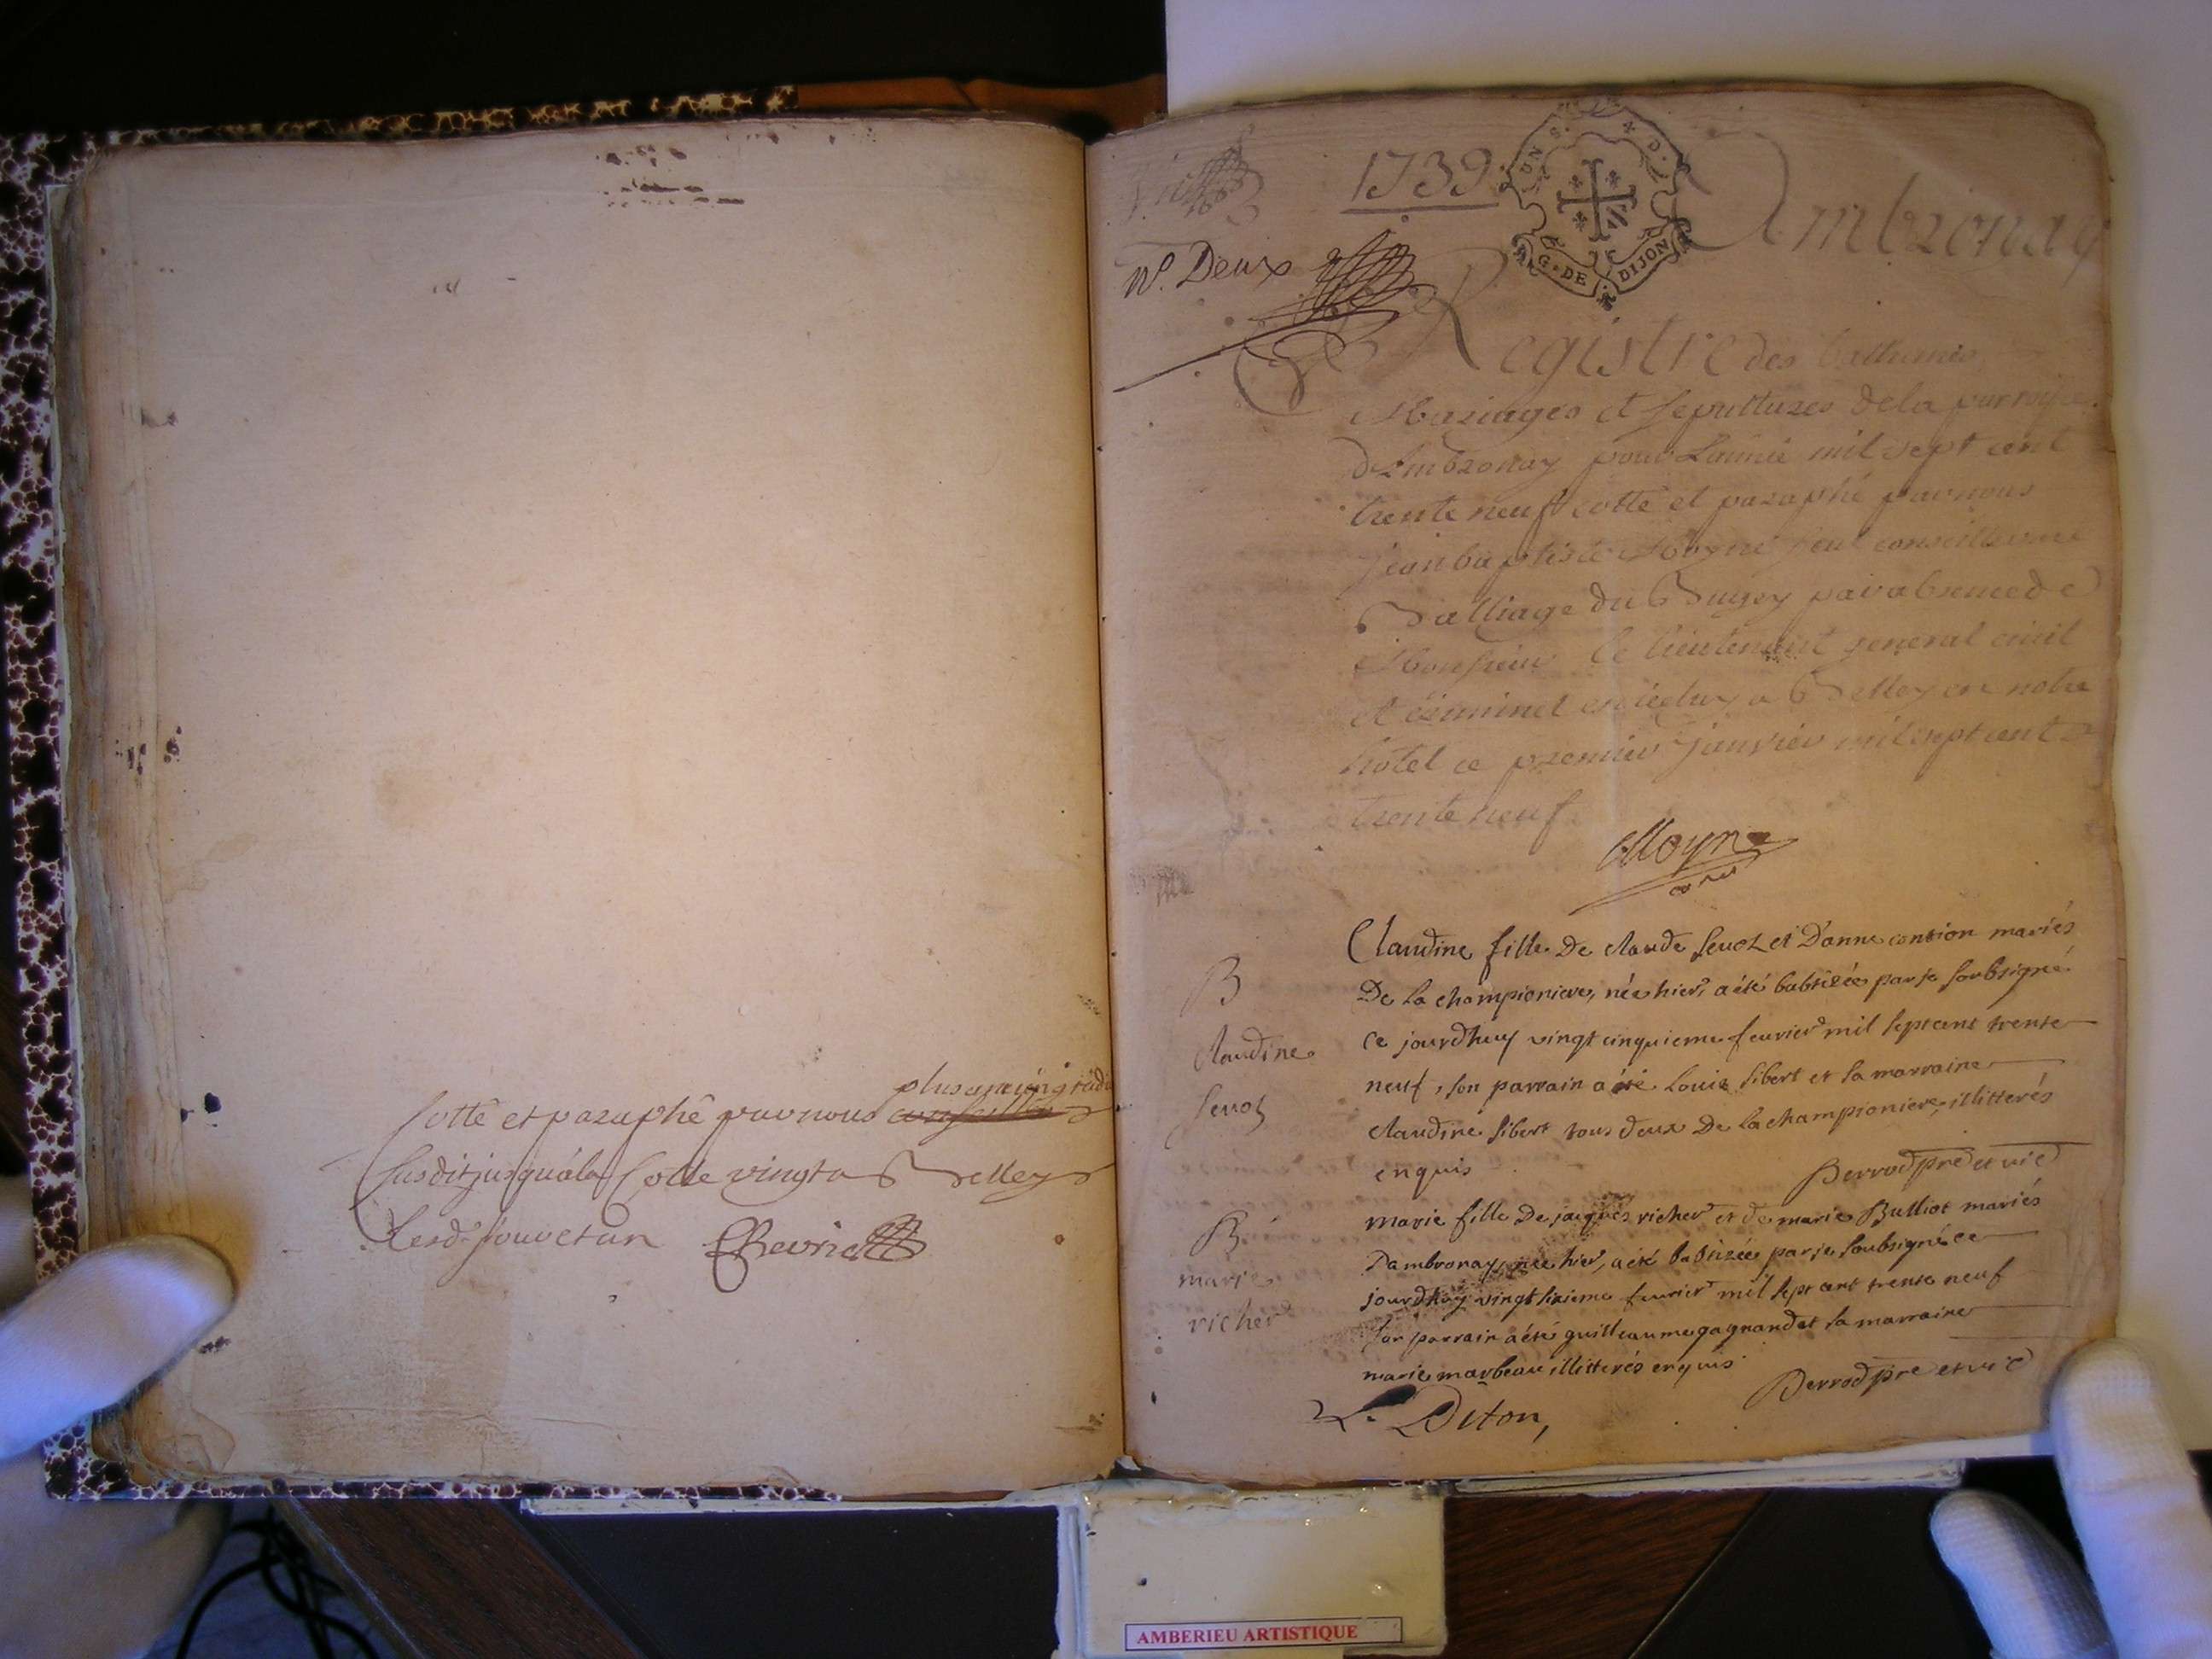 plus ancien gradué
Cotté et paraphé par nous conseiller
susdit jusqu'a la Cotte vingt a Belley
lesd. jour et an Chevrier
1739
GEN
G. DE DIJON
Ambronay
N.º Deux
Registre des battemes
Mariages et sepultures de la parroisse
d'Ambronay pour L'année mil sept cent
trente neuf cotté et paraphé par nous
jean baptiste Moyne seul conseiller au
Balliage du Bugey par absence de
Monsieur le lieutenant general civil
et criminel en iceluy a Belley en notre
hotel ce premier janvier mil sept cent
trente neuf
Moyne
B
Claudine
Seuoz
Claudine fille De claude Seuoz et D'anne contion mariés
De la championiere, née hier, a été babtizée par je soubsigné
ce jourdhuy vingt cinquieme feurier mil sept cent trente
neuf, son parrain a été Louis Sibert et sa marraine
claudine Sibert tous deux De la championiere, illitterés
enquis
Perrod pre et vic
B
marie
richer
marie fille De jacques richer et de marie Bulliot mariés
D'ambronay née hier, a été babtizée par je soubsigné ce
jourdhuy vingt sixieme feurier mil sept cent trente neuf
son parrain a été guilleaume gagnand et sa marraine
marie marbeau illitterés enquis
Perrod pre et vic
Diton,
AMBERIEU ARTISTIQUE